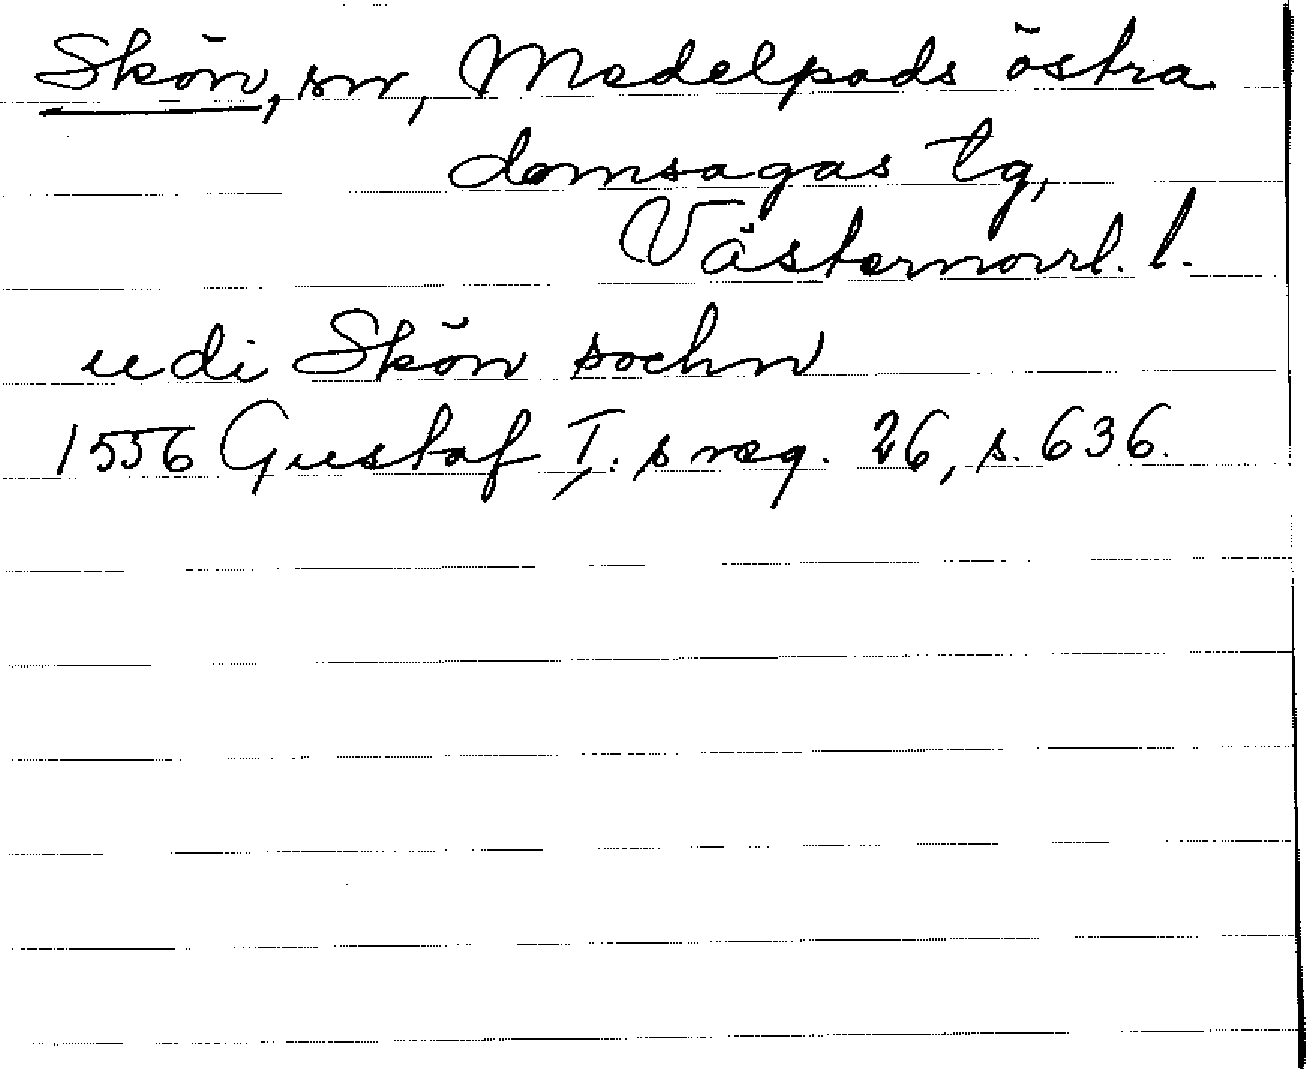 Skön, sn, Medelpads östra
domsagas tg,
Västernorrl. l.
udi Skön sochn
1556 Gustaf I:s reg. 26, s. 636.